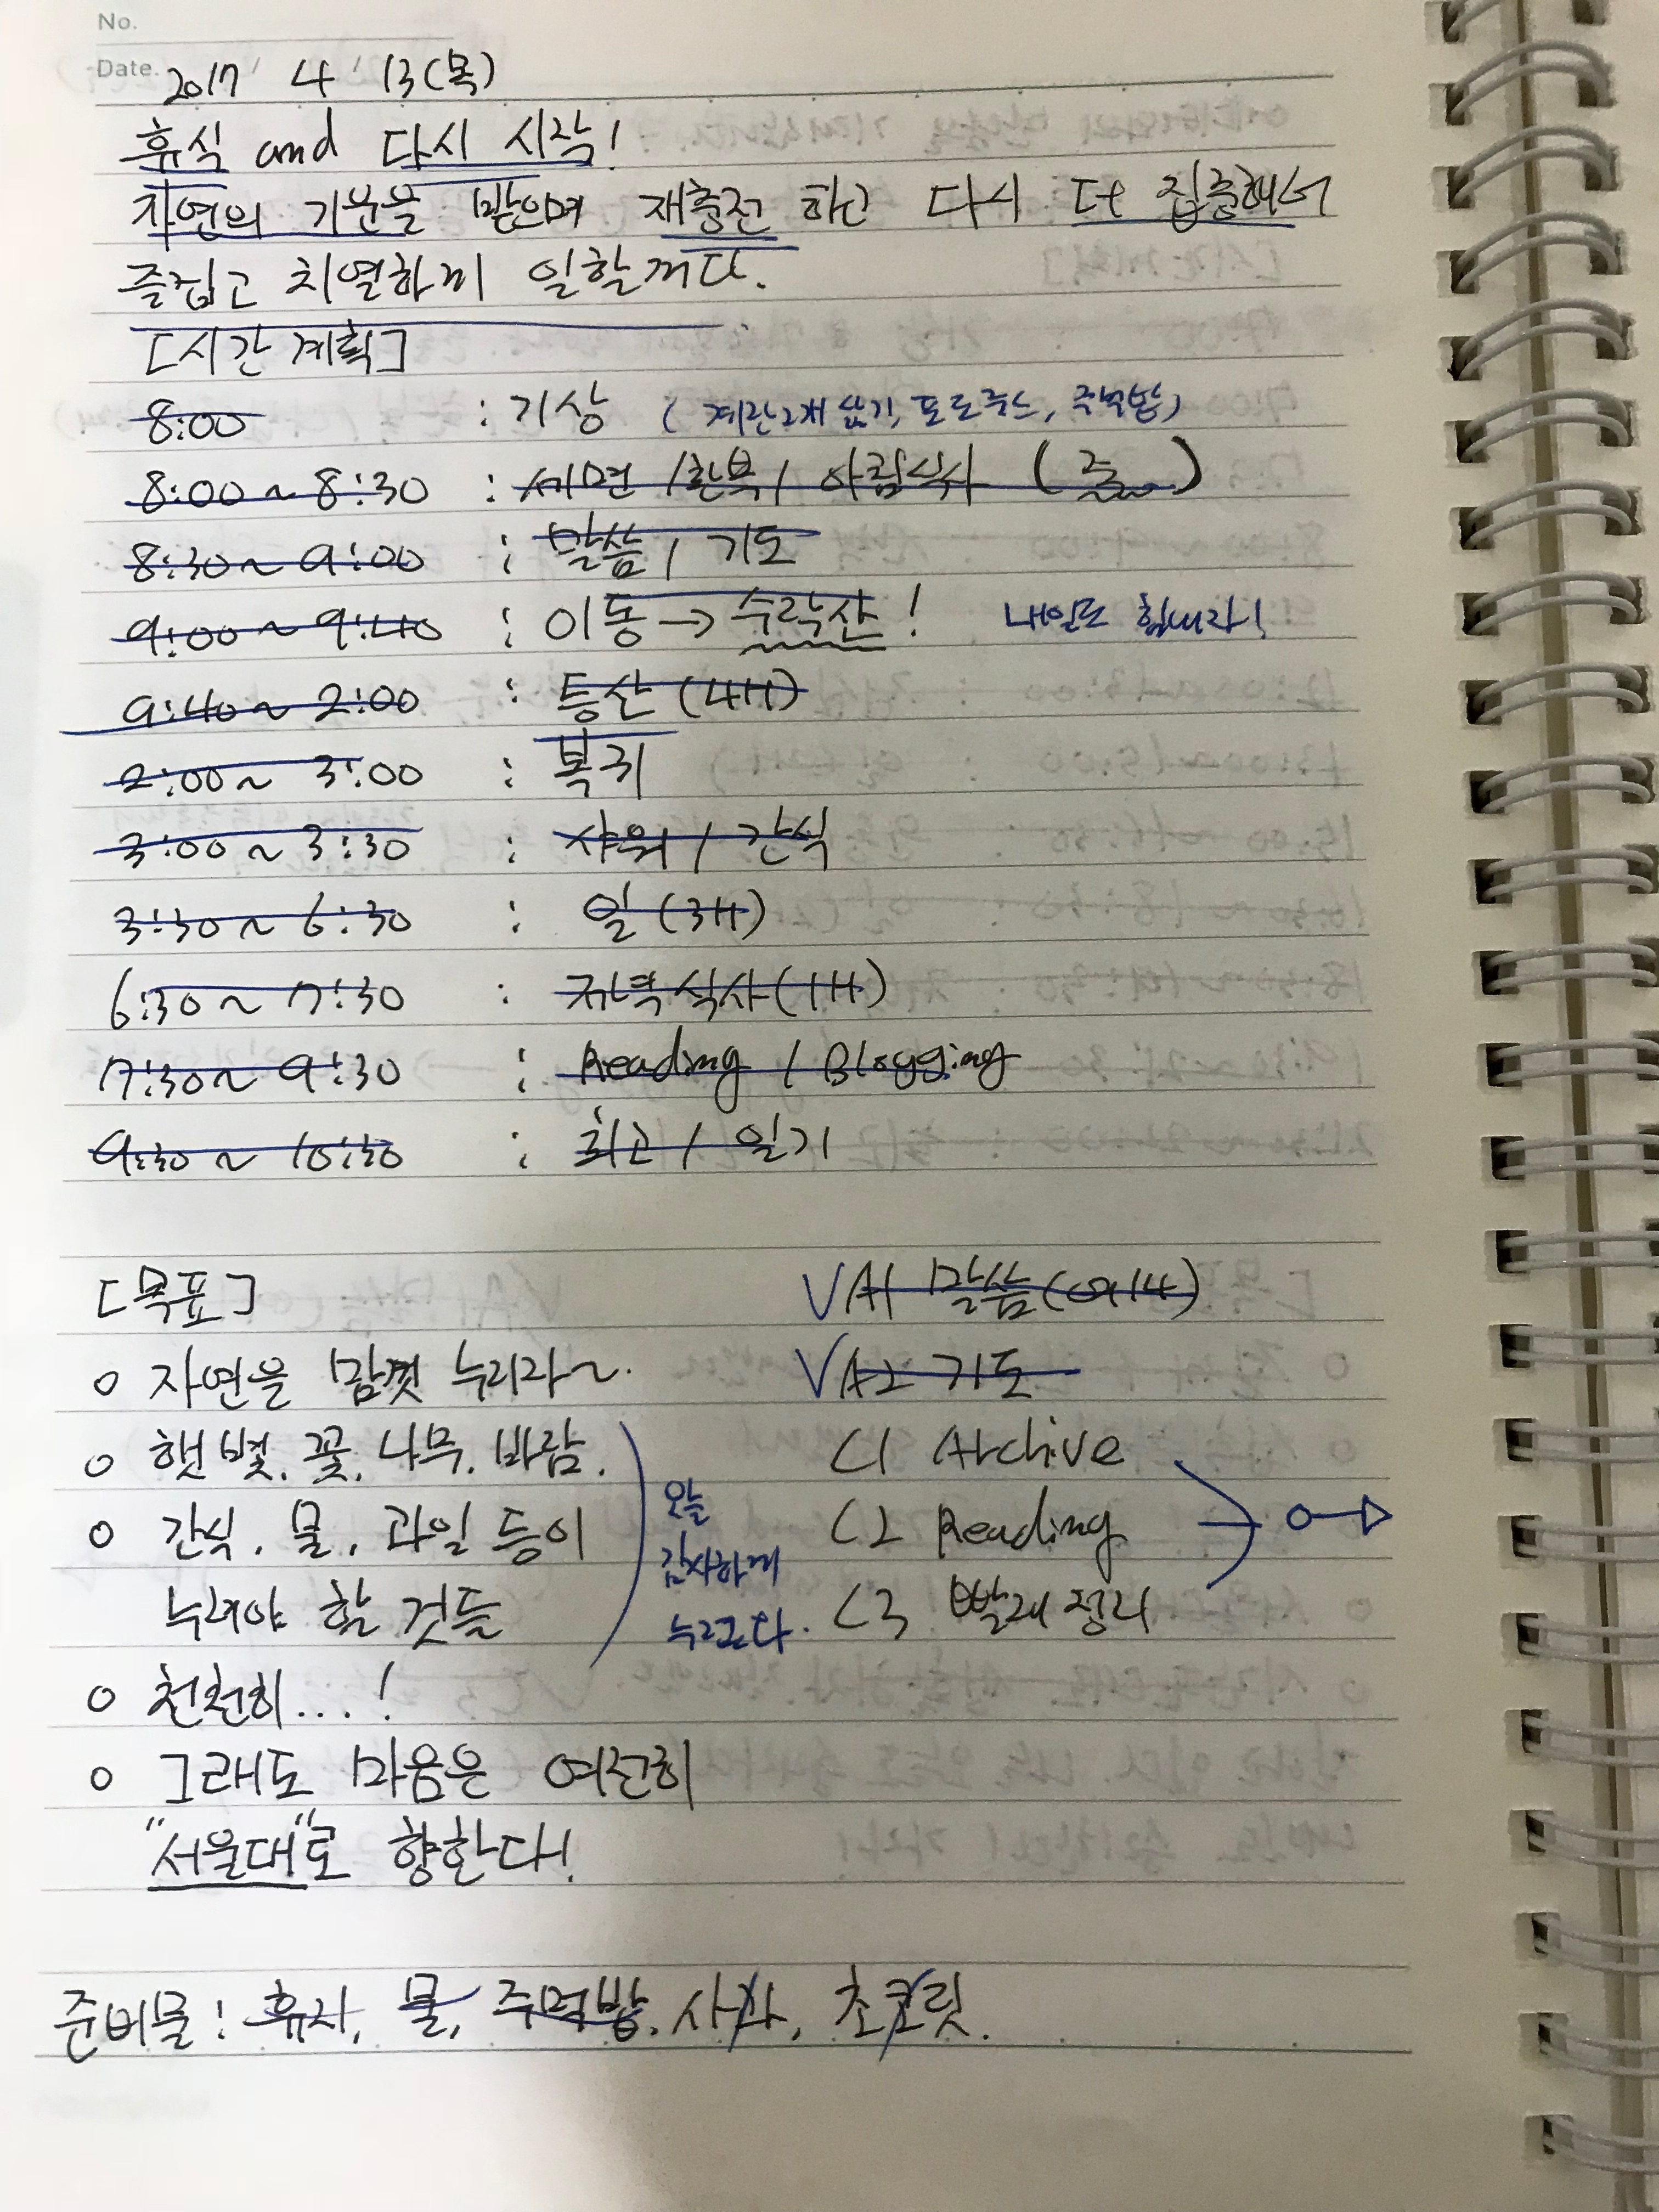 No.
Date. 2017 / 4 / 13(목)
휴식 and 다시 시작!
자연의 기운을 받으며 재충전 하고 다시 더 집중해서
즐겁고 치열하게 일할꺼다.
[시간계획]
8:00 : 기상 (계란2개 삶기, 포도쥬스, 주먹밥)
8:00 ~ 8:30 : 세면 / 환복 / 아침식사 (죽)
8:30 ~ 9:00 : 말씀 / 기도
9:00 ~ 9:40 : 이동 → 수락산! 내일도 힘내라!
9:40 ~ 2:00 : 등산 (4H)
2:00 ~ 3:00 : 복귀
3:00 ~ 3:30 : 샤워 / 간식
3:30 ~ 6:30 : 일 (3H)
6:30 ~ 7:30 : 저녁식사 (1H)
7:30 ~ 9:30 : Reading / Blogging
9:30 ~ 10:30 : 회고 / 일기
[목표] VA1 말씀
o 자연을 맘껏 누리라~. VA2 기도
o 햇볓. 꽃. 나무. 바람. C1 Archive
o 간식. 물. 과일 등이 오늘 C2 Reading
감사하게
누려야 할 것들 누리고다. C3 빨래정리
o 천천히...!
o 그래도 마음은 여전히
"서울대"로 향한다!
준비물 : 휴지, 물, 주먹밥. 사과, 초코릿.